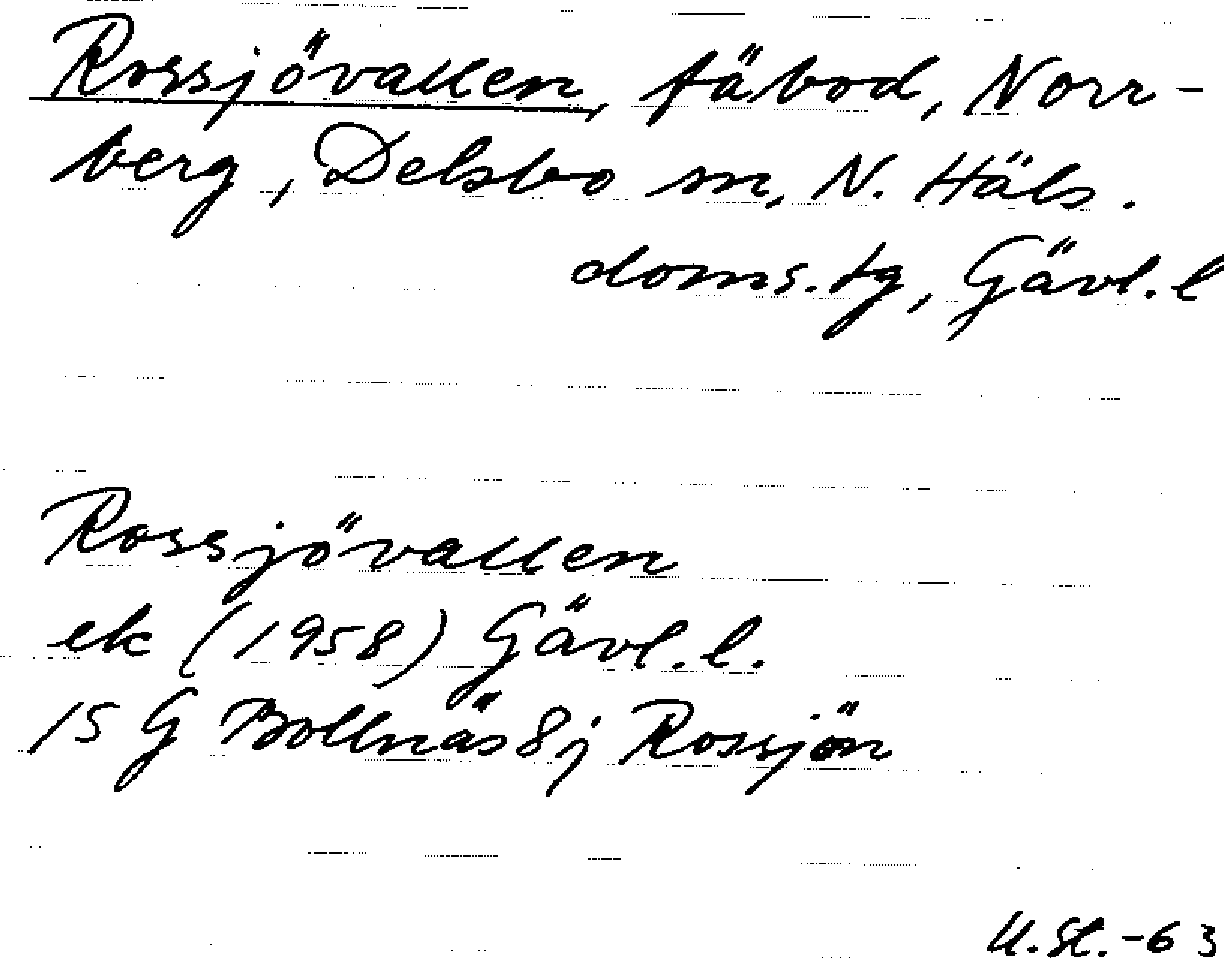 Rossjövallen, fäbod, Norr-
berg, Delsbo sn, N. Häls.
doms.tg, Gävl.l
Rossjövallen
ek (1958) Gävl.l.
15 G Bollnäs 8j Rossjön
U.St.-63